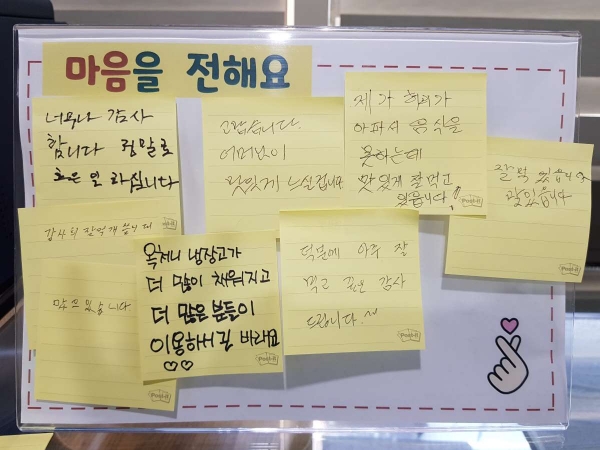 마음을 전해요
너무나 감사
합니다 정말로
좋은 일 하십니다
고맙습니다.
어머님이
맛있게 느실겁니다
제가 허리가
아파서 음식을
못하는데
맛있게 잘먹고
있읍니다!
잘먹 었읍니다
맛있읍니다
감사히 잘먹게 씁니다
먹고 있습니다
옥천니 냉장고가
더 많이 채워지고
더 많은 분들이
이용하셔길 바래요
덕분에 아주 잘
먹고 있은 감사
드립니다.~